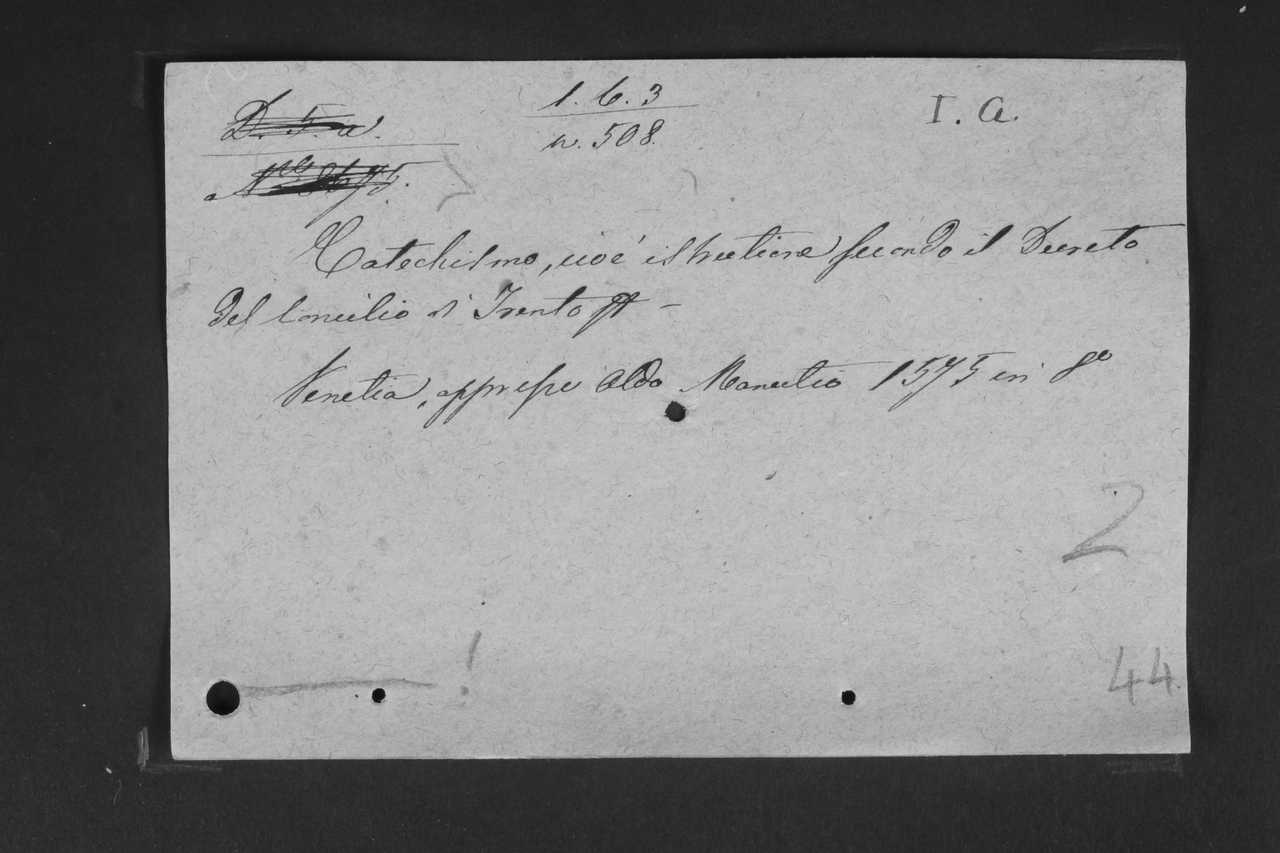 D. 5. a.
1. 6. 3
n. 508.
I. a.
Catechismo, cioé istrutione secondo il Decreto
del Concilio di Trento
Venetia, appresso Aldo Manutio 1575 in 8º
2
!
44